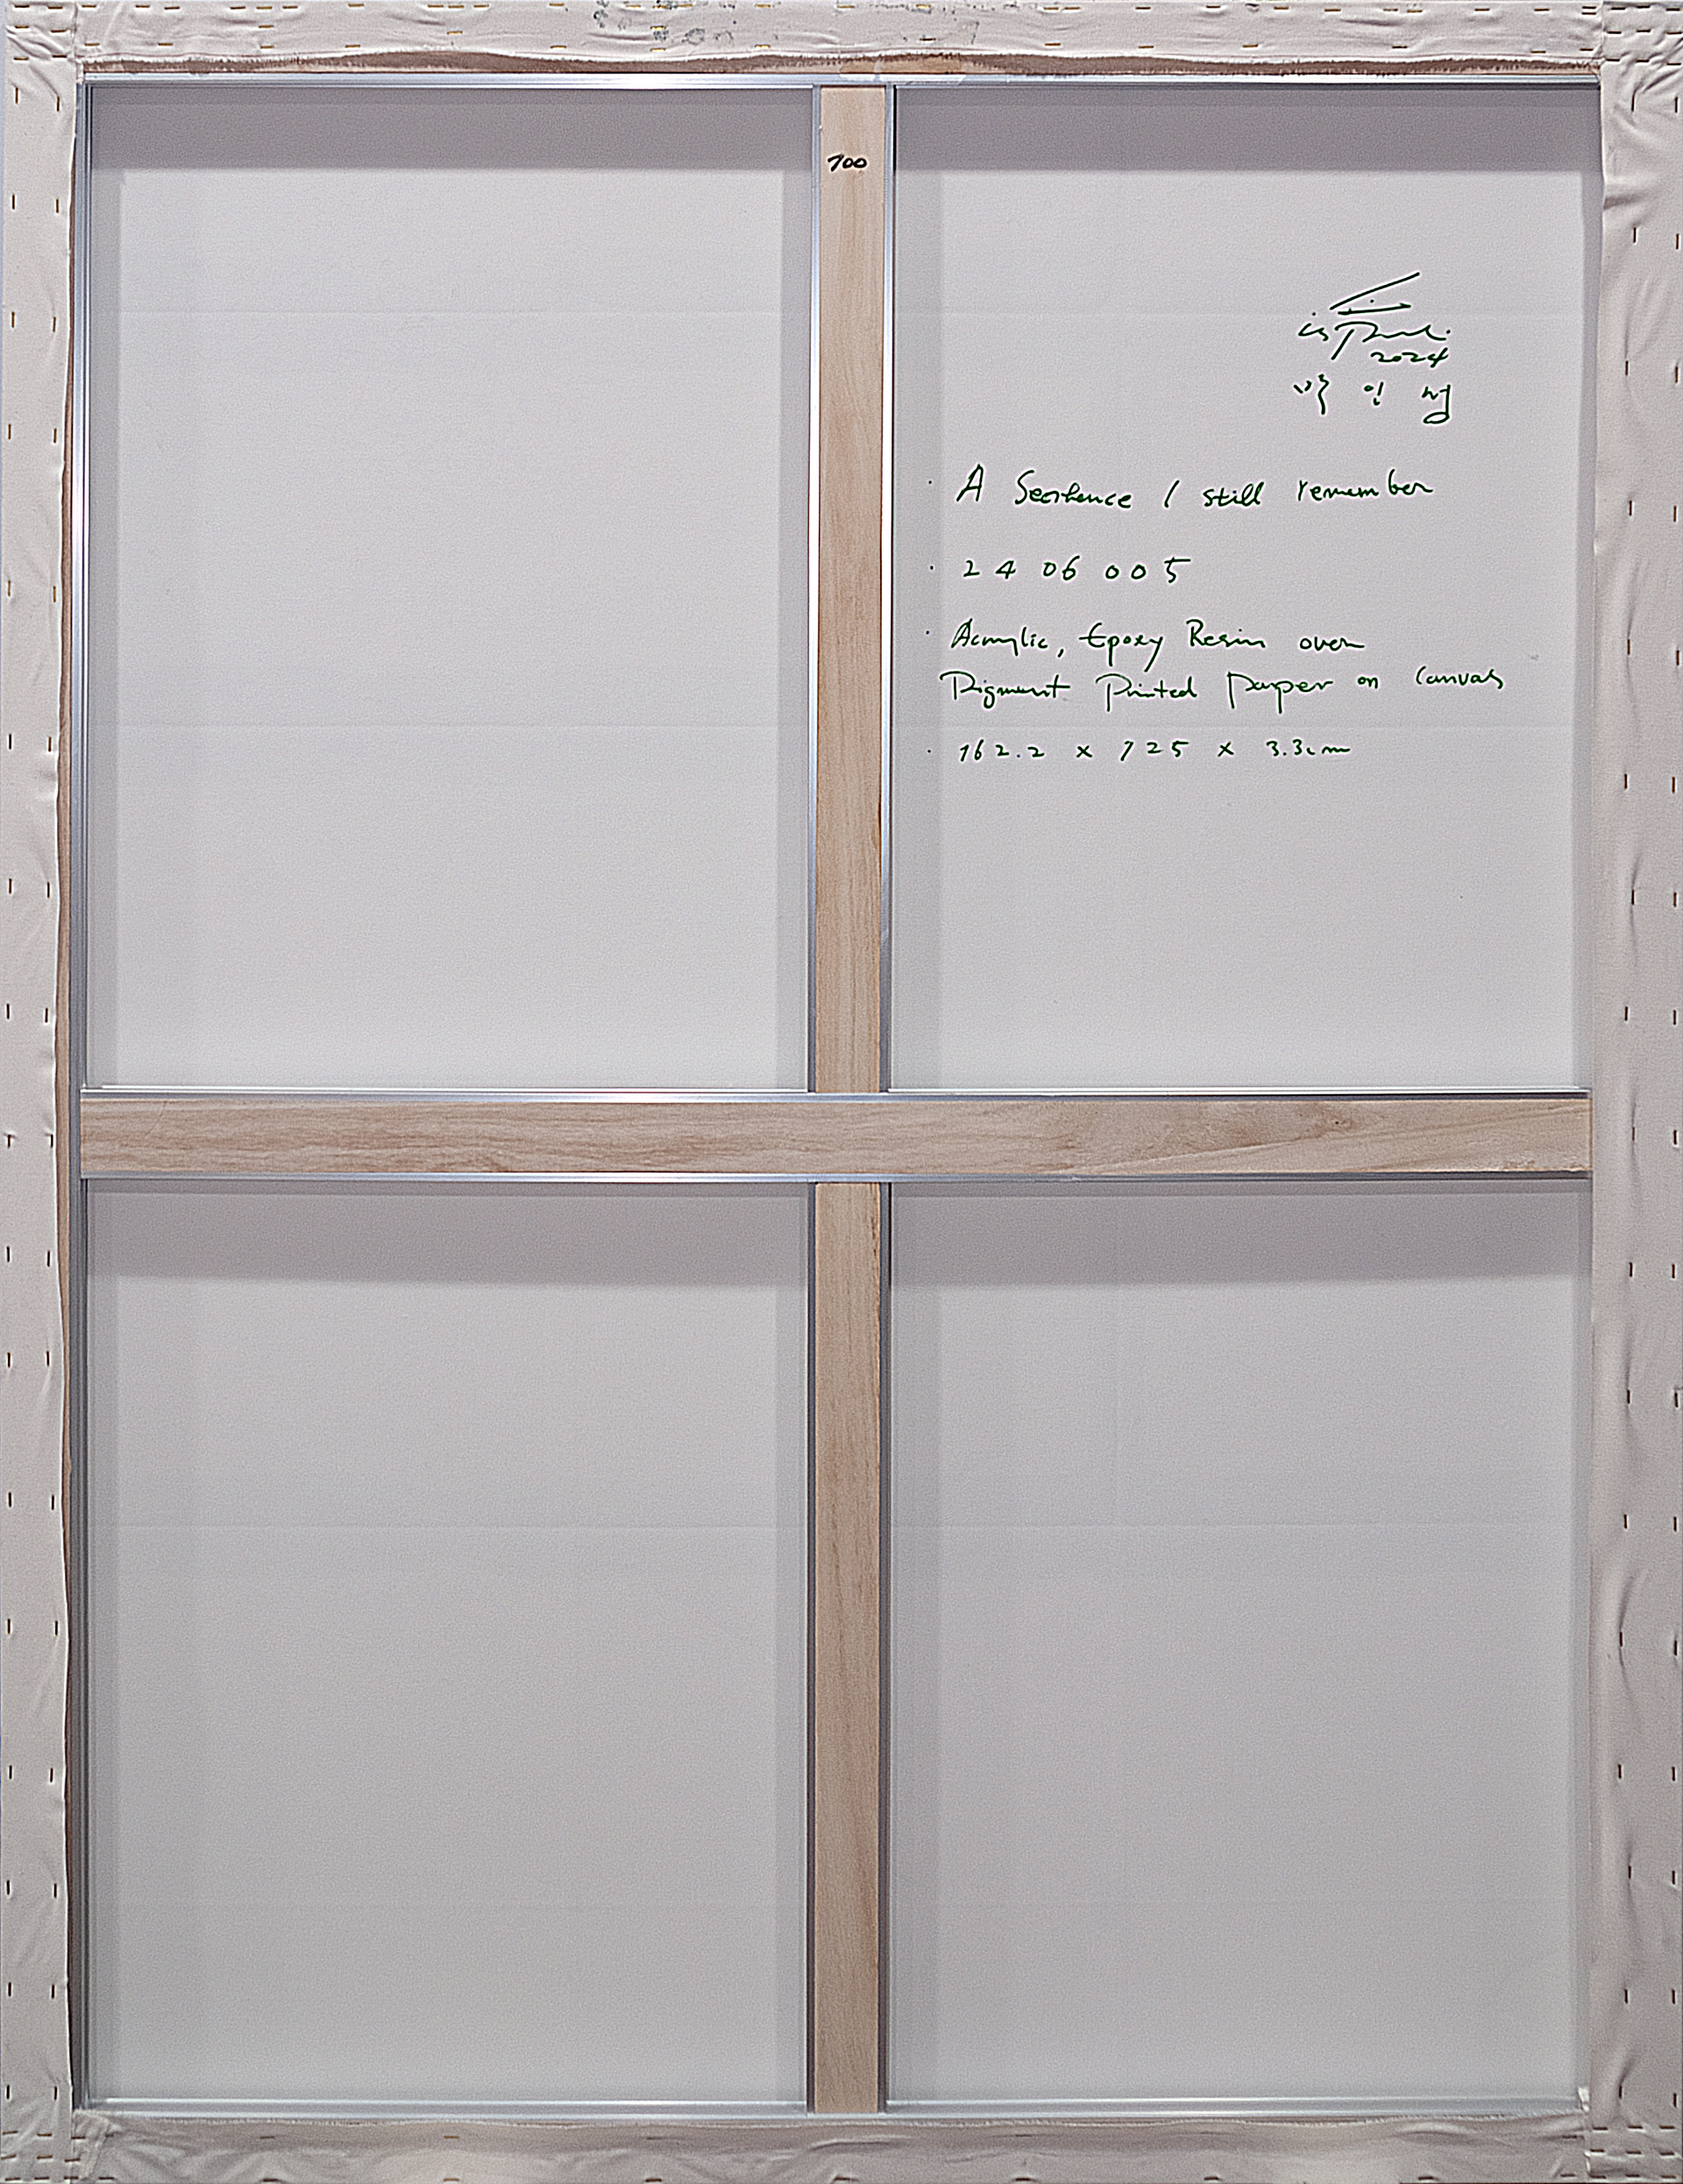 100
2024
박 인 성
· A Sentence I still remember
· 24 06 005
· Acrylic, Epoxy Resin over
Pigment Printed Paper on Canvas
· 162.2 x 125 x 3.3cm